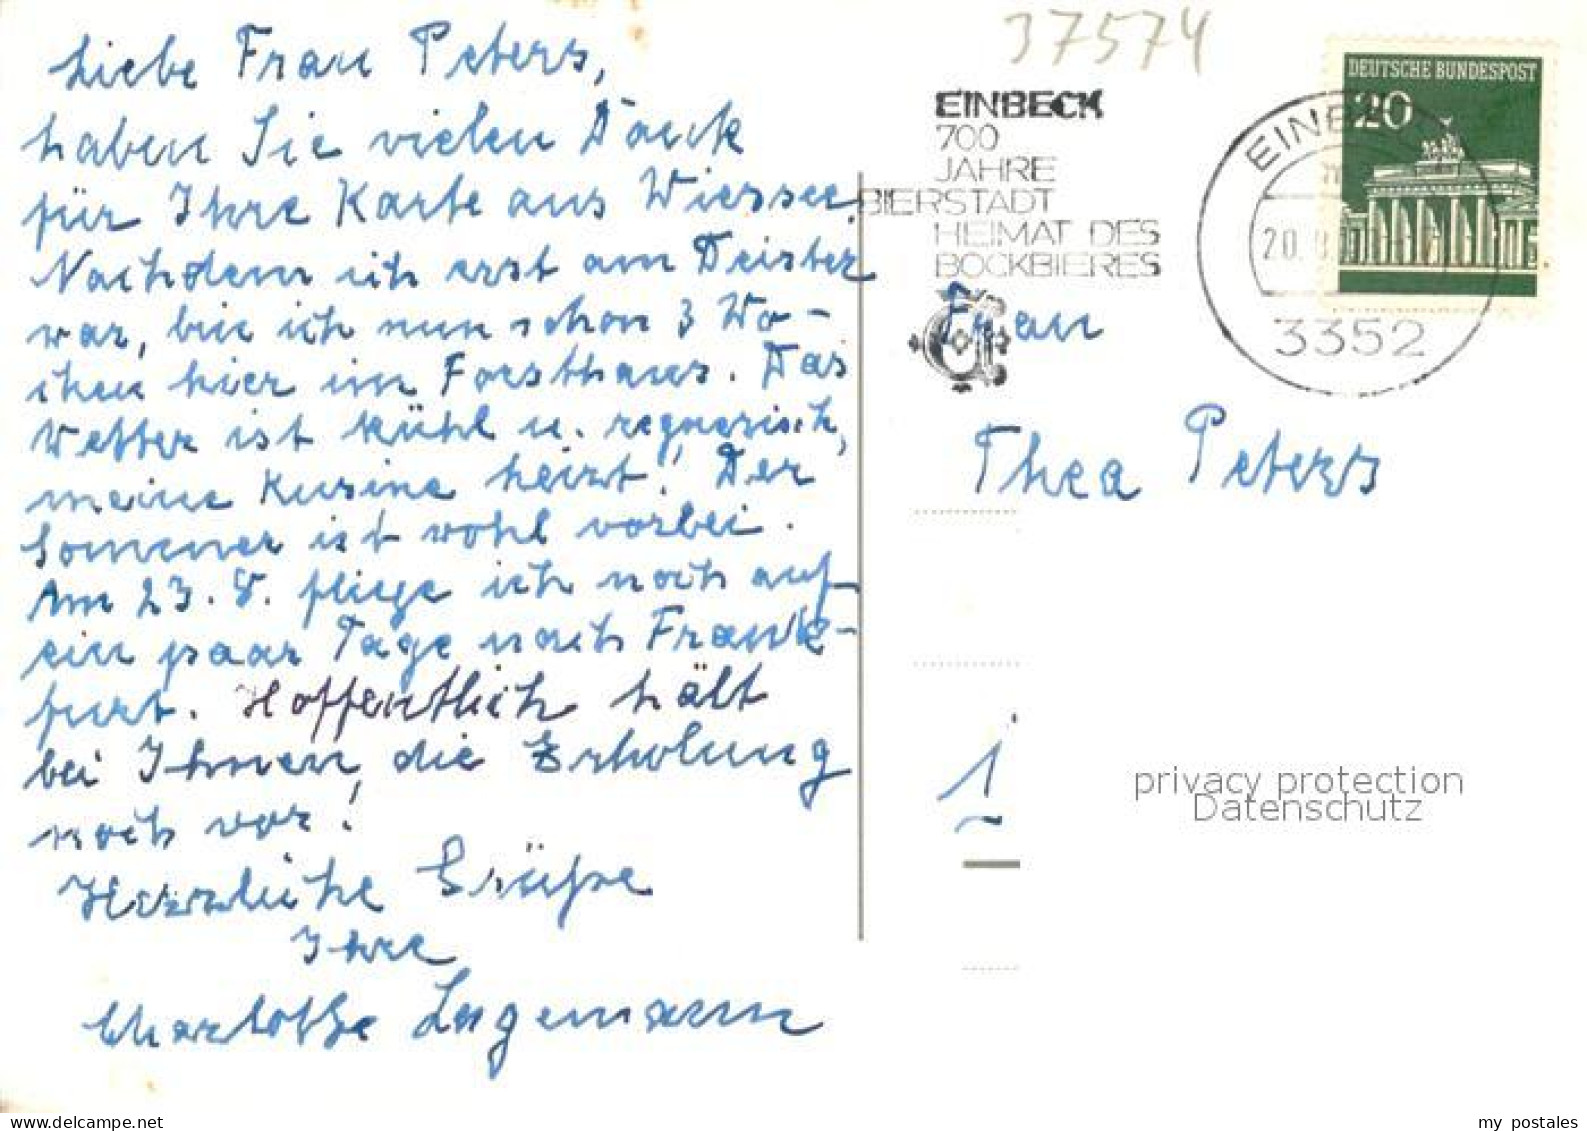 37574
Liebe Frau Peters,
haben Sie vielen Dank
für Ihre Karte aus Wiessee.
Nachdem ich erst am Deister
war, bin ich nun schon 3 Wo-
chen hier im Forsthaus. Das
Wetter ist kühl u. regnerisch,
meine Kusine heizt! Der
Sommer ist wohl vorbei.
Am 23. 8. fliege ich noch auf
ein paar Tage nach Frank-
furt. Hoffentlich hält
bei Ihnen die Erholung
noch vor!
Herzliche Grüße
Ihre
Charlotte Lagemann
EINBECK
700
JAHRE
BIERSTADT
HEIMAT DES
BOCKBIERES
DEUTSCHE BUNDESPOST
20
3352
Frau
Thea Peters
privacy protection
Datenschutz
my postales